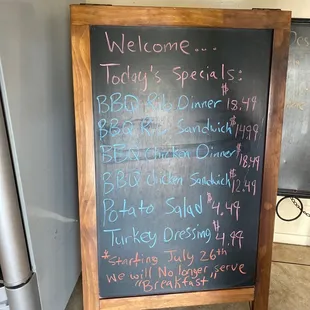 Welcome...
Today's Specials:
BBQ Rib Dinner 18.49
BBQ Rib Sandwich $14.99
BBQ Chicken Dinner $18.49
BBQ Chicken Sandwich $12.49
Potato Salad $4.49
Turkey Dressing $4.99
*Starting July 26th
We will No longer serve
"Breakfast"